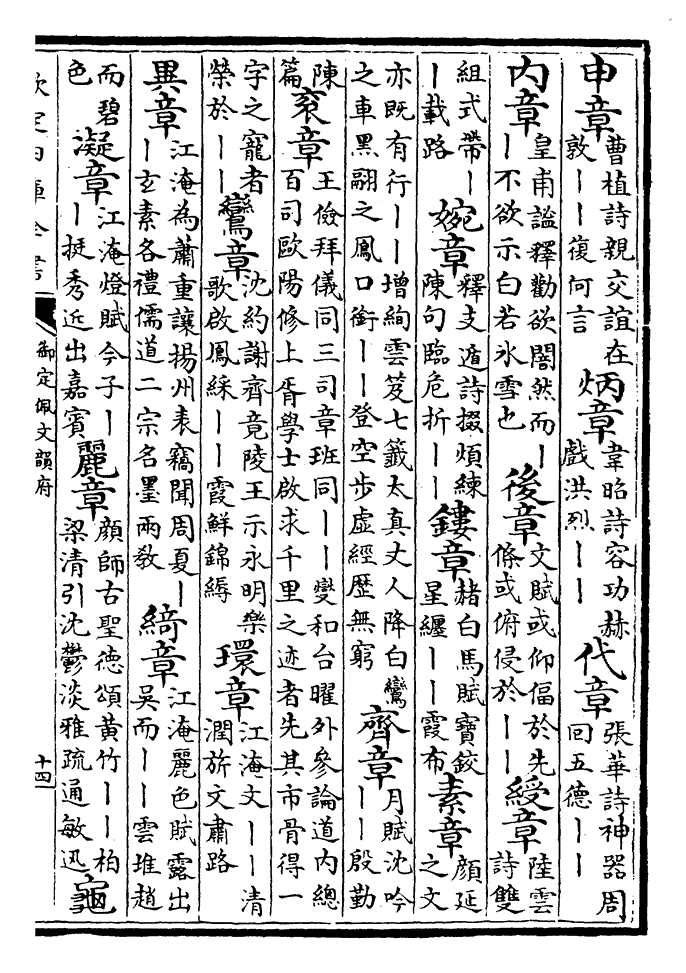 申章曹植詩親交誼在敦丨丨復何言 炳章韋昭詩容功赫戲洪烈丨丨 代章張華詩神器周回五德丨丨
內章皇甫謐釋勸欲闇然而丨丨不欲示白若氷雪也 後章文賦或仰偪於先條或俯侵於丨丨 綬章陸雲詩雙
組式帶丨丨載路 婉章釋支遁詩掇煩練陳句臨危折丨丨 鏤章赭白馬賦寶鉸星纏丨丨霞布 素章顔延之文
亦既有行丨丨增絢雲笈七籤太真丈人降白鸞之車黑翮之鳳口銜丨丨登空步虛經歷無窮 齊章月賦沈吟丨丨殷勤
陳篇 衮章王儉拜儀同三司章班同丨丨爕和台曜外參論道內總百司歐陽修上胥學士啟求千里之迹者先其市骨得一
字之寵者榮於丨丨 鸞章沈約謝齊竟陵王示永明樂歌啟鳳綵丨丨霞鮮錦縟 環章江淹文丨丨清潤旂文肅路
異章江淹為蕭重讓揚州表竊聞周夏丨丨玄素各禮儒道二宗名墨兩教 綺章江淹麗色賦露出吳而丨丨雲堆趙
而碧色 凝章江淹燈賦今子丨丨挺秀近出嘉賓 麗章顔師古聖德頌黃竹丨丨柏梁清引沈鬱淡雅疏通敏迅 龜
欽定四庫全書
御定佩文韻府
十四